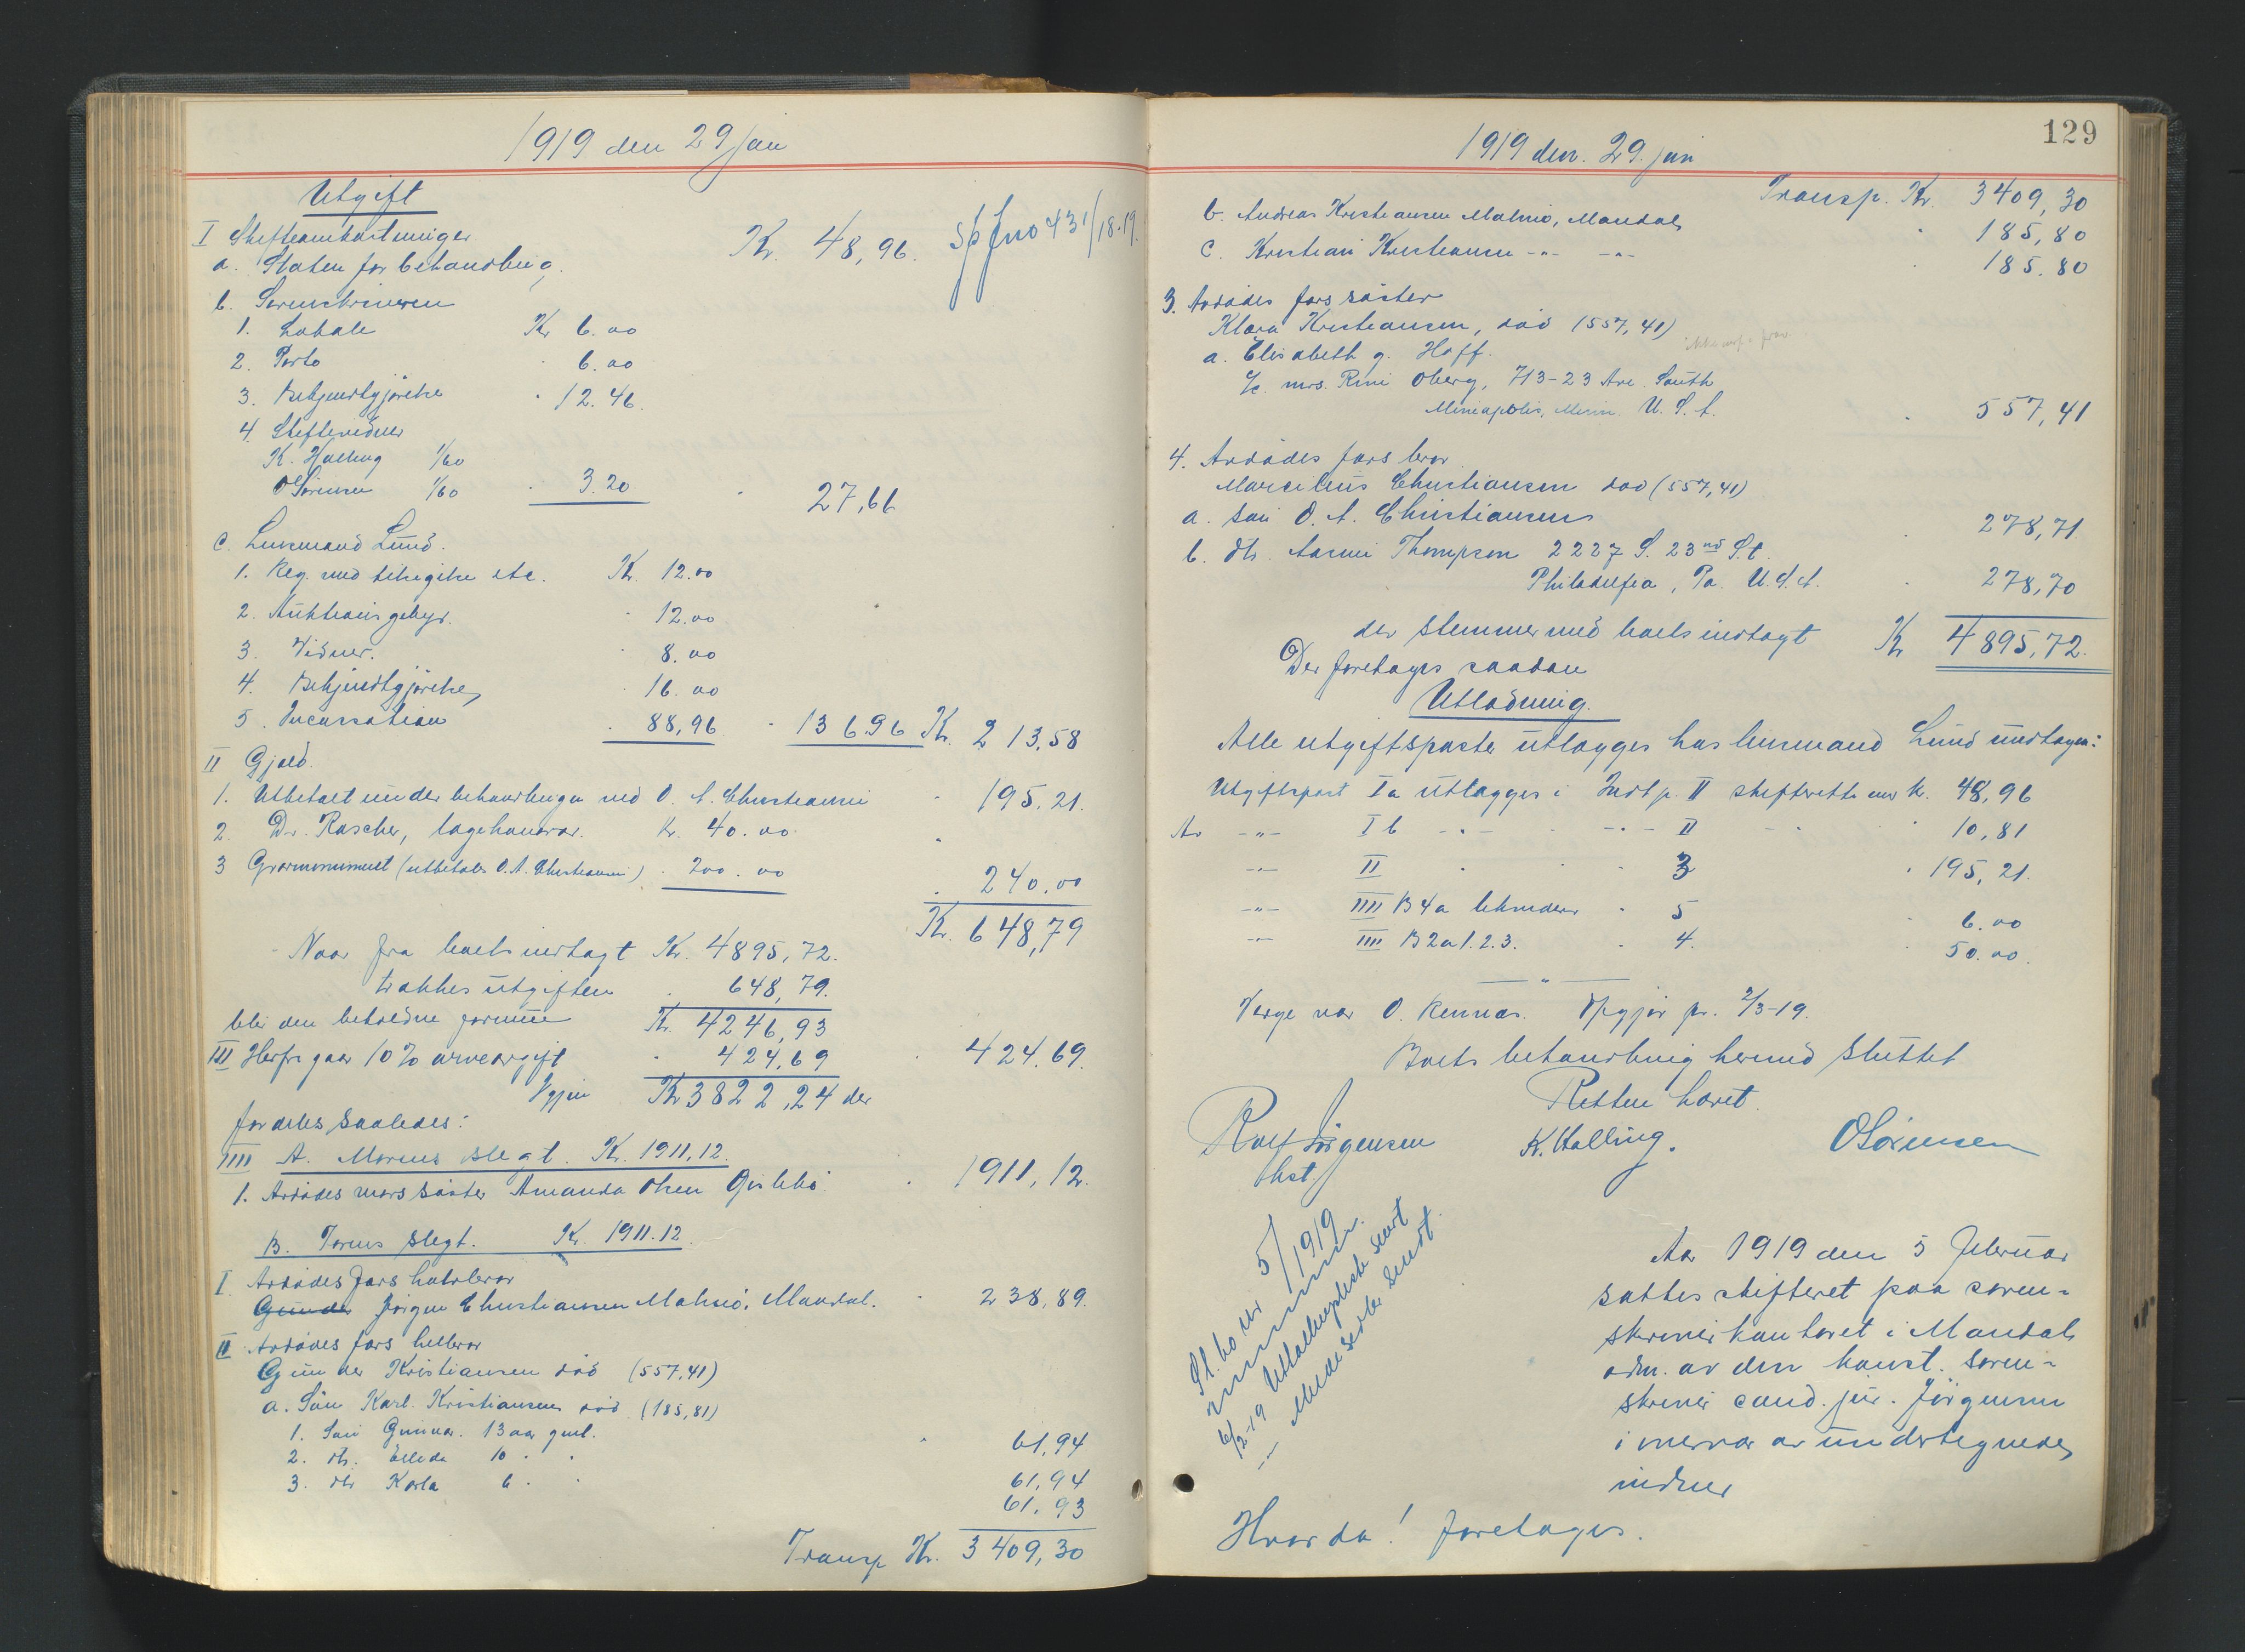 1919 den 29 jan
Utgift
I Skifteomkostninger
a. Staten for behandling Kr. 48,96. Sp jno 431/18-19.
b. Sorenskriveren
1. Lokale Kr 6.00
2. Porto " 6.00
3. Bekjendtgjörelse " 12.46
4. Skiftevidner
K. Halling 1/60
O Sörensen 1/60 " 3.20 " 27,66
c. Lensmand Lund.
1. Reg. med tilsigelse etc. Kr. 12.00
2. Auktionsgebyr. " 12.00
3. Vidner. " 8.00
4. Bekjendtgjörelse " 16.00
5. Incassation " 88,96 " 136 96 Kr. 213,58
II Gjæld.
1. Utbetalt under behandlingen ved O. A. Christiansen " 195.21.
2. Dr. Rascher, lægehonorar. Kr. 40.00
3 Gravmonument (utbetales O. A. Christiansen) " 200.00 " 240.00
Kr. 648,79
Naar fra boets indtægt Kr. 4895,72.
trækkes utgiften " 648,79.
blir den beholdne formue Kr. 4246,93
III Herfra gaar 10% arveavgift " 424,69 " 424.69.
Igjen Kr 3822,24 der
fordeles saaledes:
IIII A. Morens slegt. Kr. 1911,12.
1. Avdödes mors söster Amanda Olsen Gislebö " 1911,12.
B. Farens slegt. Kr. 1911.12
I. Avdödes fars halvbror
Gunder Jörgen Christiansen Malmö, Mandal. " 238,89.
II Avdödes fars helbror
Gunder Kristiansen död (557,41)
a. Sön Karl Kristiansen död (185,81)
1. Sön Gunvar. 13 aar gml. " 61,94
2. dtr. Elleda 10 " " 61,94
3. dtr Karla 6 " " 61,93
Transp Kr. 3409,30
129
1919 den. 29. jan
Transp. Kr. 3409,30
b. Andreas Kristiansen Malmö, Mandal " 185,80
c. Kristian Kristiansen -"- -"- " 185.80
3. Avdödes fars söster
Klara Kristiansen, död (557,41)
a. Elisabeth g. Hoff.
c/c. mrs. Rini Oberg, 713-23 Ave. South
Mineapolis, Minn. U. S. A. " 557,41
4. Avdödes fars bror
Marcelius Christiansen död (557,41)
a. Sön O. A. Christiansen " 278,71
b. dtr. Aasmi Thompson 2227 S. 23nd St.
Philadelfia, Pa. U.S.A. " 278,70
der stemmer med boets indtægt Kr 4895,72.
Der foretages saadan
Utlodning.
Alle utgiftsposter utlægges hos lensmand Lund undtagen:
Utgiftspost I a utlægges i Indt p. II skifteretten med kr. 48,96
Av -"- I b -"- -"- II " 10,81
-"- II " 3 " 195,21.
-"- IIII B 4 a " 5 " 6.00
-"- IIII B 2 a 1.2.3. " 4. " 50.00.
Verge var O. Rennæs. Opgjör pr. 2/3-19.
Boets behandling hermed sluttet
Retten hævet.
Rolf Jörgensen K. Halling. OSörensen
kst.
Sl. bo nr 5/1919
6/2-19 Utlodningsliste sendt
-"- Meddelelse sendt.
Aar 1919 den 5 Februar
sattes skifteret paa soren-
skriverkontoret i Mandal
adm. av den konst. soren-
skriver cand. jur. Jörgensen
i nærvær av undertegnede
vidner
Hvorda! foretages.